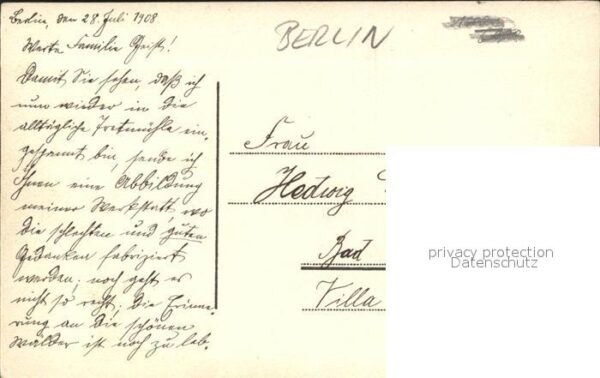 Berlin, den 28. Juli 1908
Werte Familie Geist!
Damit Sie sehen, daß ich
nun wieder in die
alltägliche Tretmühle ein-
gespannt bin, sende ich
Ihnen eine Abbildung
meiner Werkstatt, wo
die schlechten und guten
Gedanken fabriziert
werden; noch geht es
nicht so recht; die Erinne-
rung an die schönen
Wälder ist noch zu leb-
BERLIN
Frau
Hedwig
Bad
Villa
privacy protection
Datenschutz